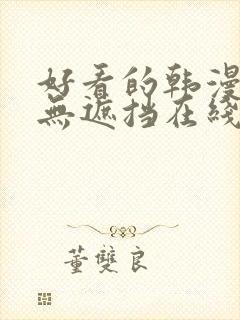 好看的韩漫
無遮挡在綫
董雙良